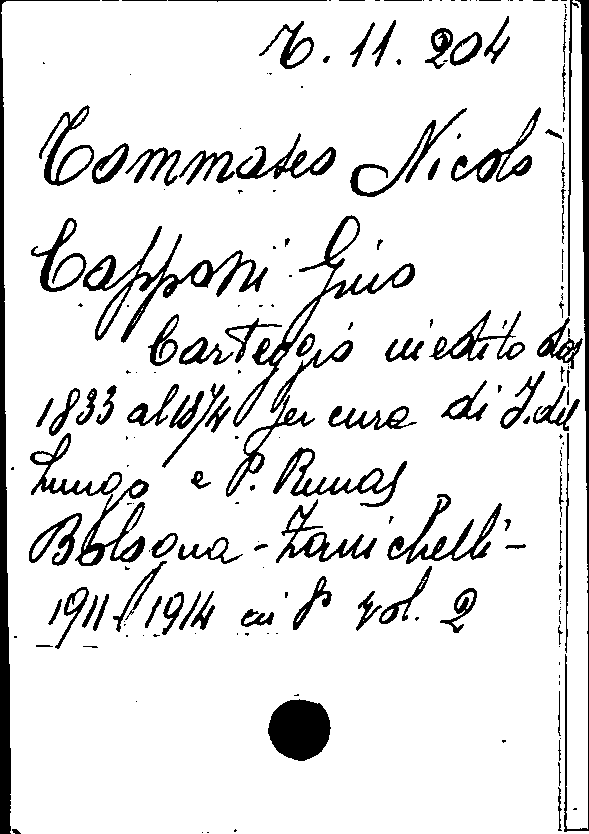 T. 11. 204
Tommaseo Nicolò
Capponi Gino
Carteggio inedito dal
1833 al 1874 per cura di I. del
Lungo e P. Prunas
Bologna - Zanichelli -
1911 - 1914 in 8° vol. 2